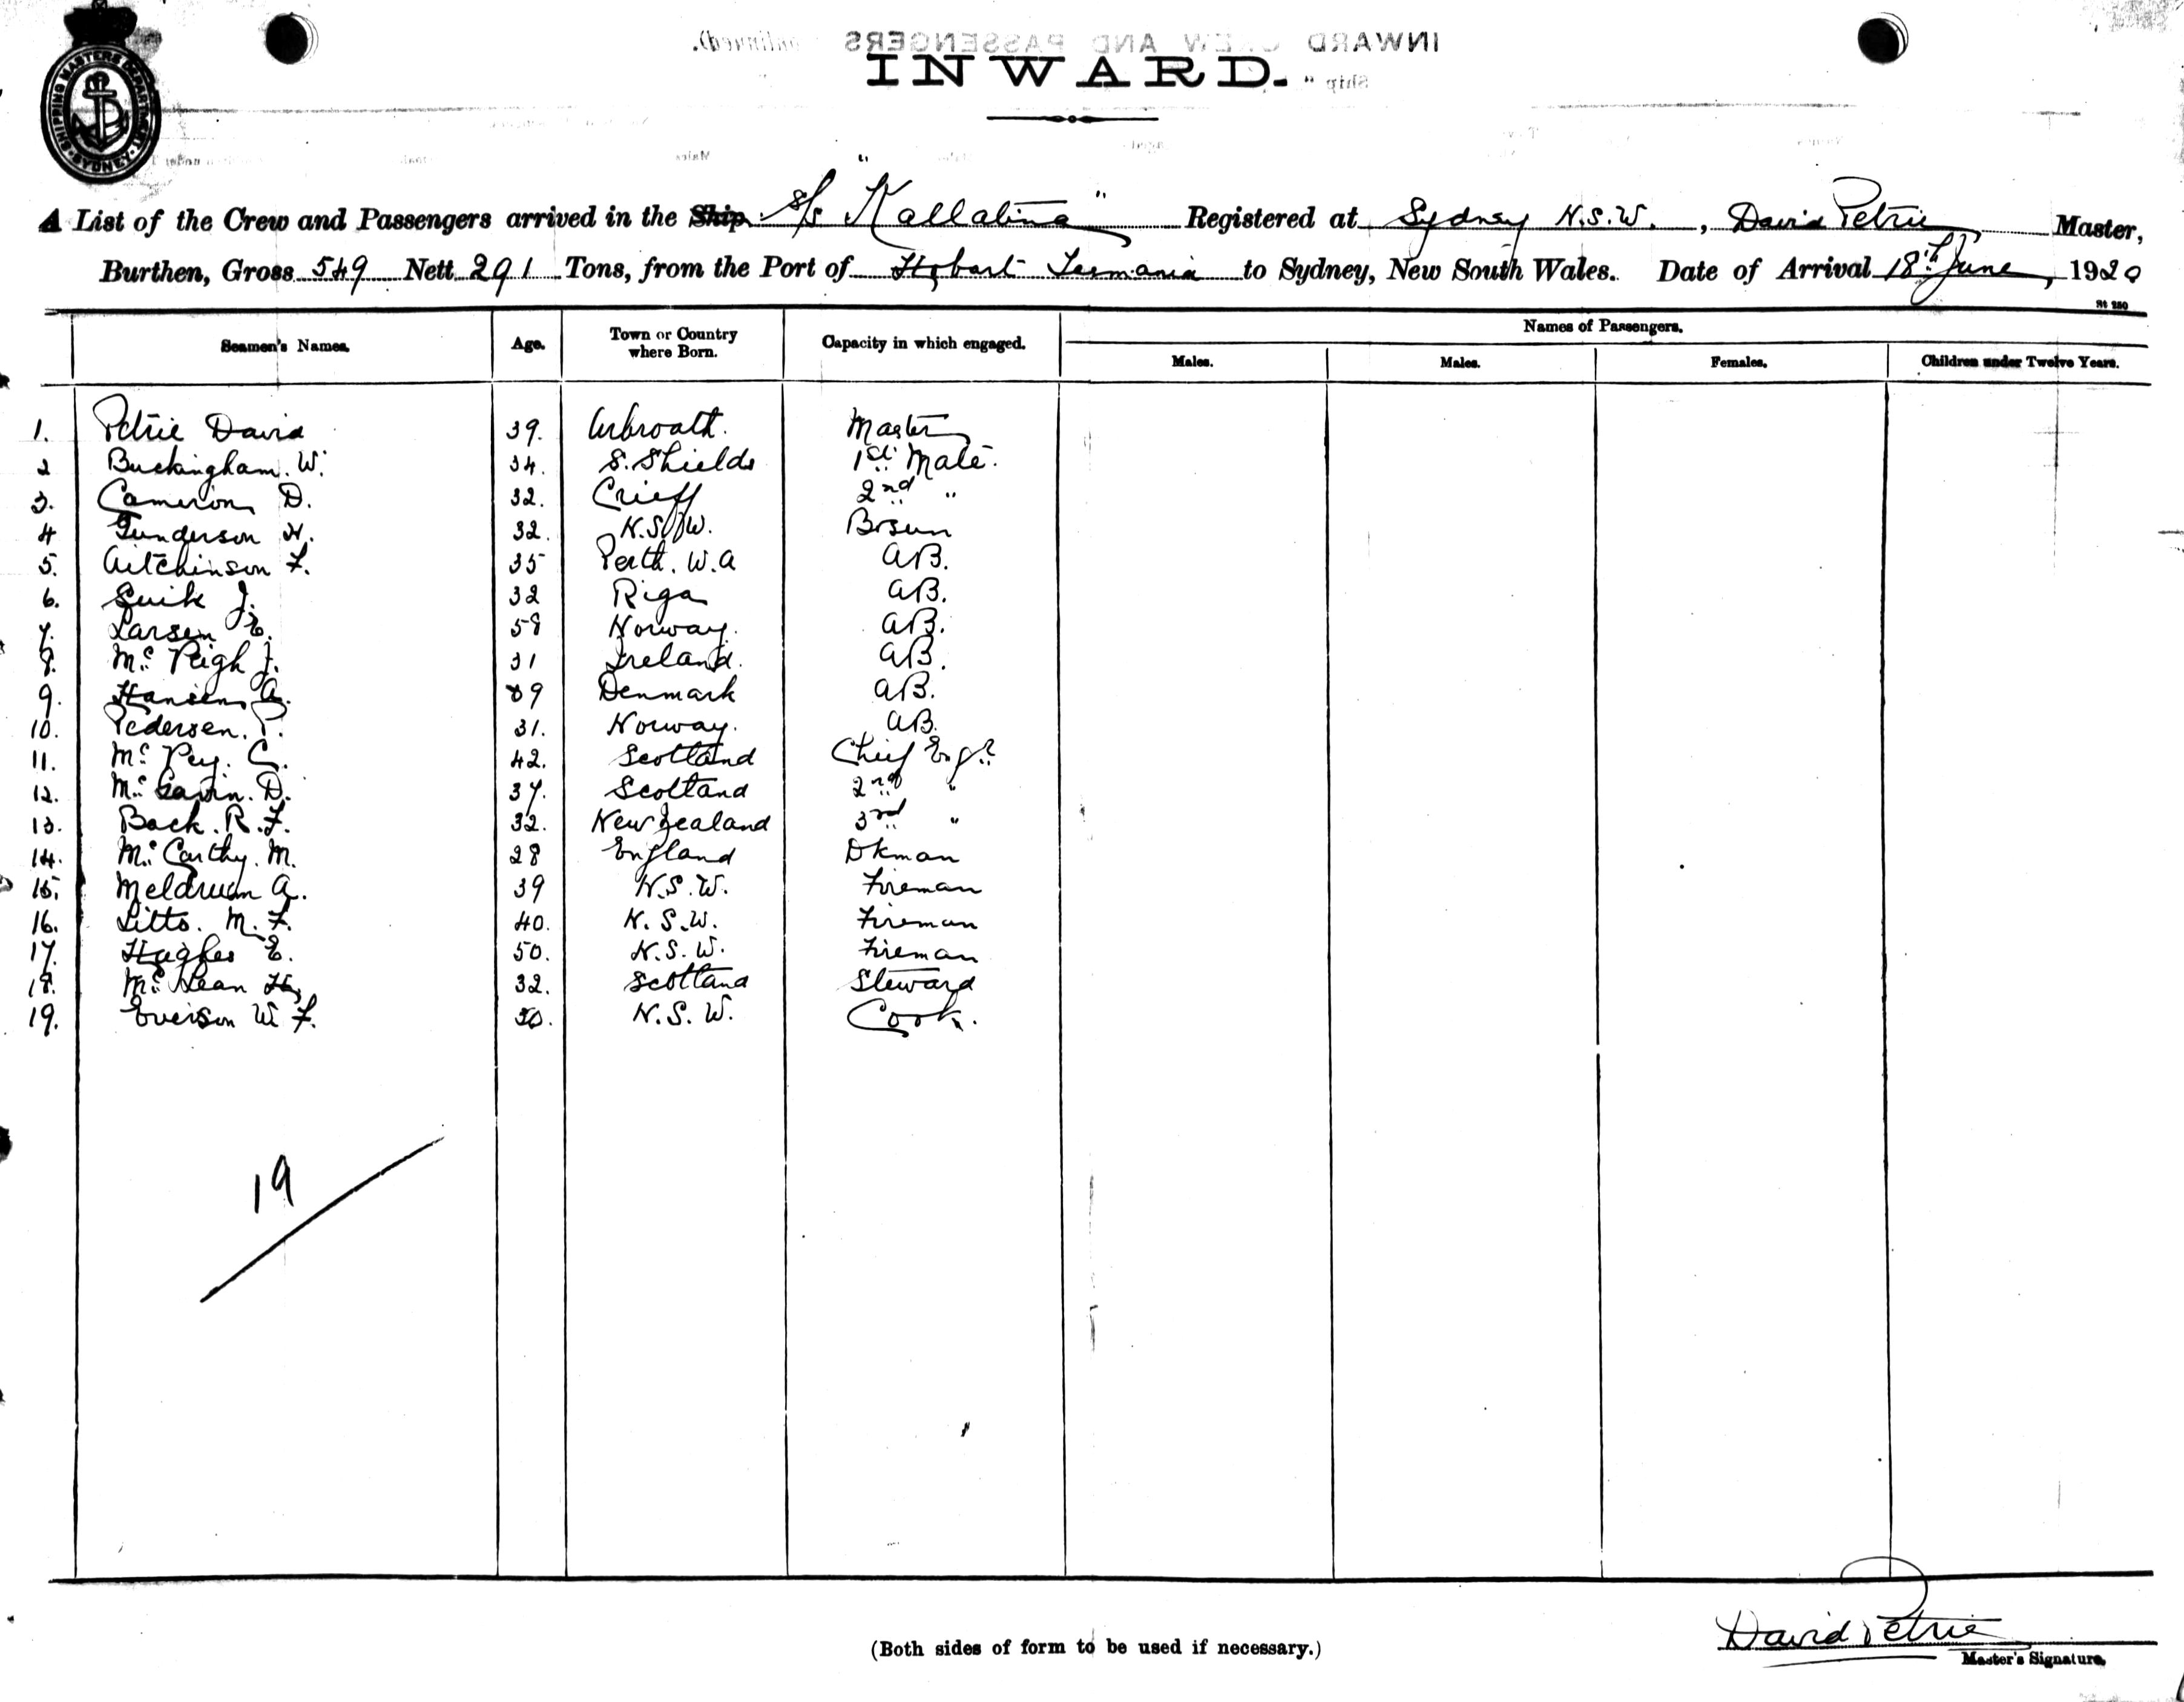 SHIPPING MASTERS DEPARTMENT
INWARD.
A List of the Crew and Passengers arrived in the Ship s/s "Kallatina" Registered at Sydney N.S.W., David Petrie Master,
Burthen, Gross 549 Nett 291 Tons, from the Port of Hobart Tasmania to Sydney, New South Wales. Date of Arrival 18th June, 1920
St 250
Seamen's Names. Age. Town or Country where Born. Capacity in which engaged. Names of Passengers.
Males. Males. Females. Children under Twelve Years.
1. Petrie David 39. Arbroath. Master
2 Buckingham. W. 34. S. Shields 1st Mate.
3. Cameron D. 32. Crieff 2nd "
4 Gunderson H. 32. N.S.W. Bosun
5. Aitchinson F. 35 Perth. W.A AB.
6. Suik J. 32 Riga AB.
7. Larsen E. 58 Norway. AB.
8. Mc Peigh J. 31 Ireland. AB.
9. Hansen A. 39 Denmark AB.
10. Pedersen. P. 31. Norway. AB.
11. Mc Pey. C. 42. Scotland Chief Engr.
12. Mc Gavin. D. 37. Scotland 2nd "
13. Back. R. F. 32. New Zealand 3rd "
14. Mc Carthy. M. 28 England Dkman
15. Meldrum A. 39 N.S.W. Fireman
16. Litto. M. F. 40. N.S.W. Fireman
17. Hughes E. 50. N.S.W. Fireman
18. Mc Lean 32. Scotland Steward
19. Everson W. F. 50. N.S.W. Cook.
19
(Both sides of form to be used if necessary.)
David Petrie
Master's Signature.